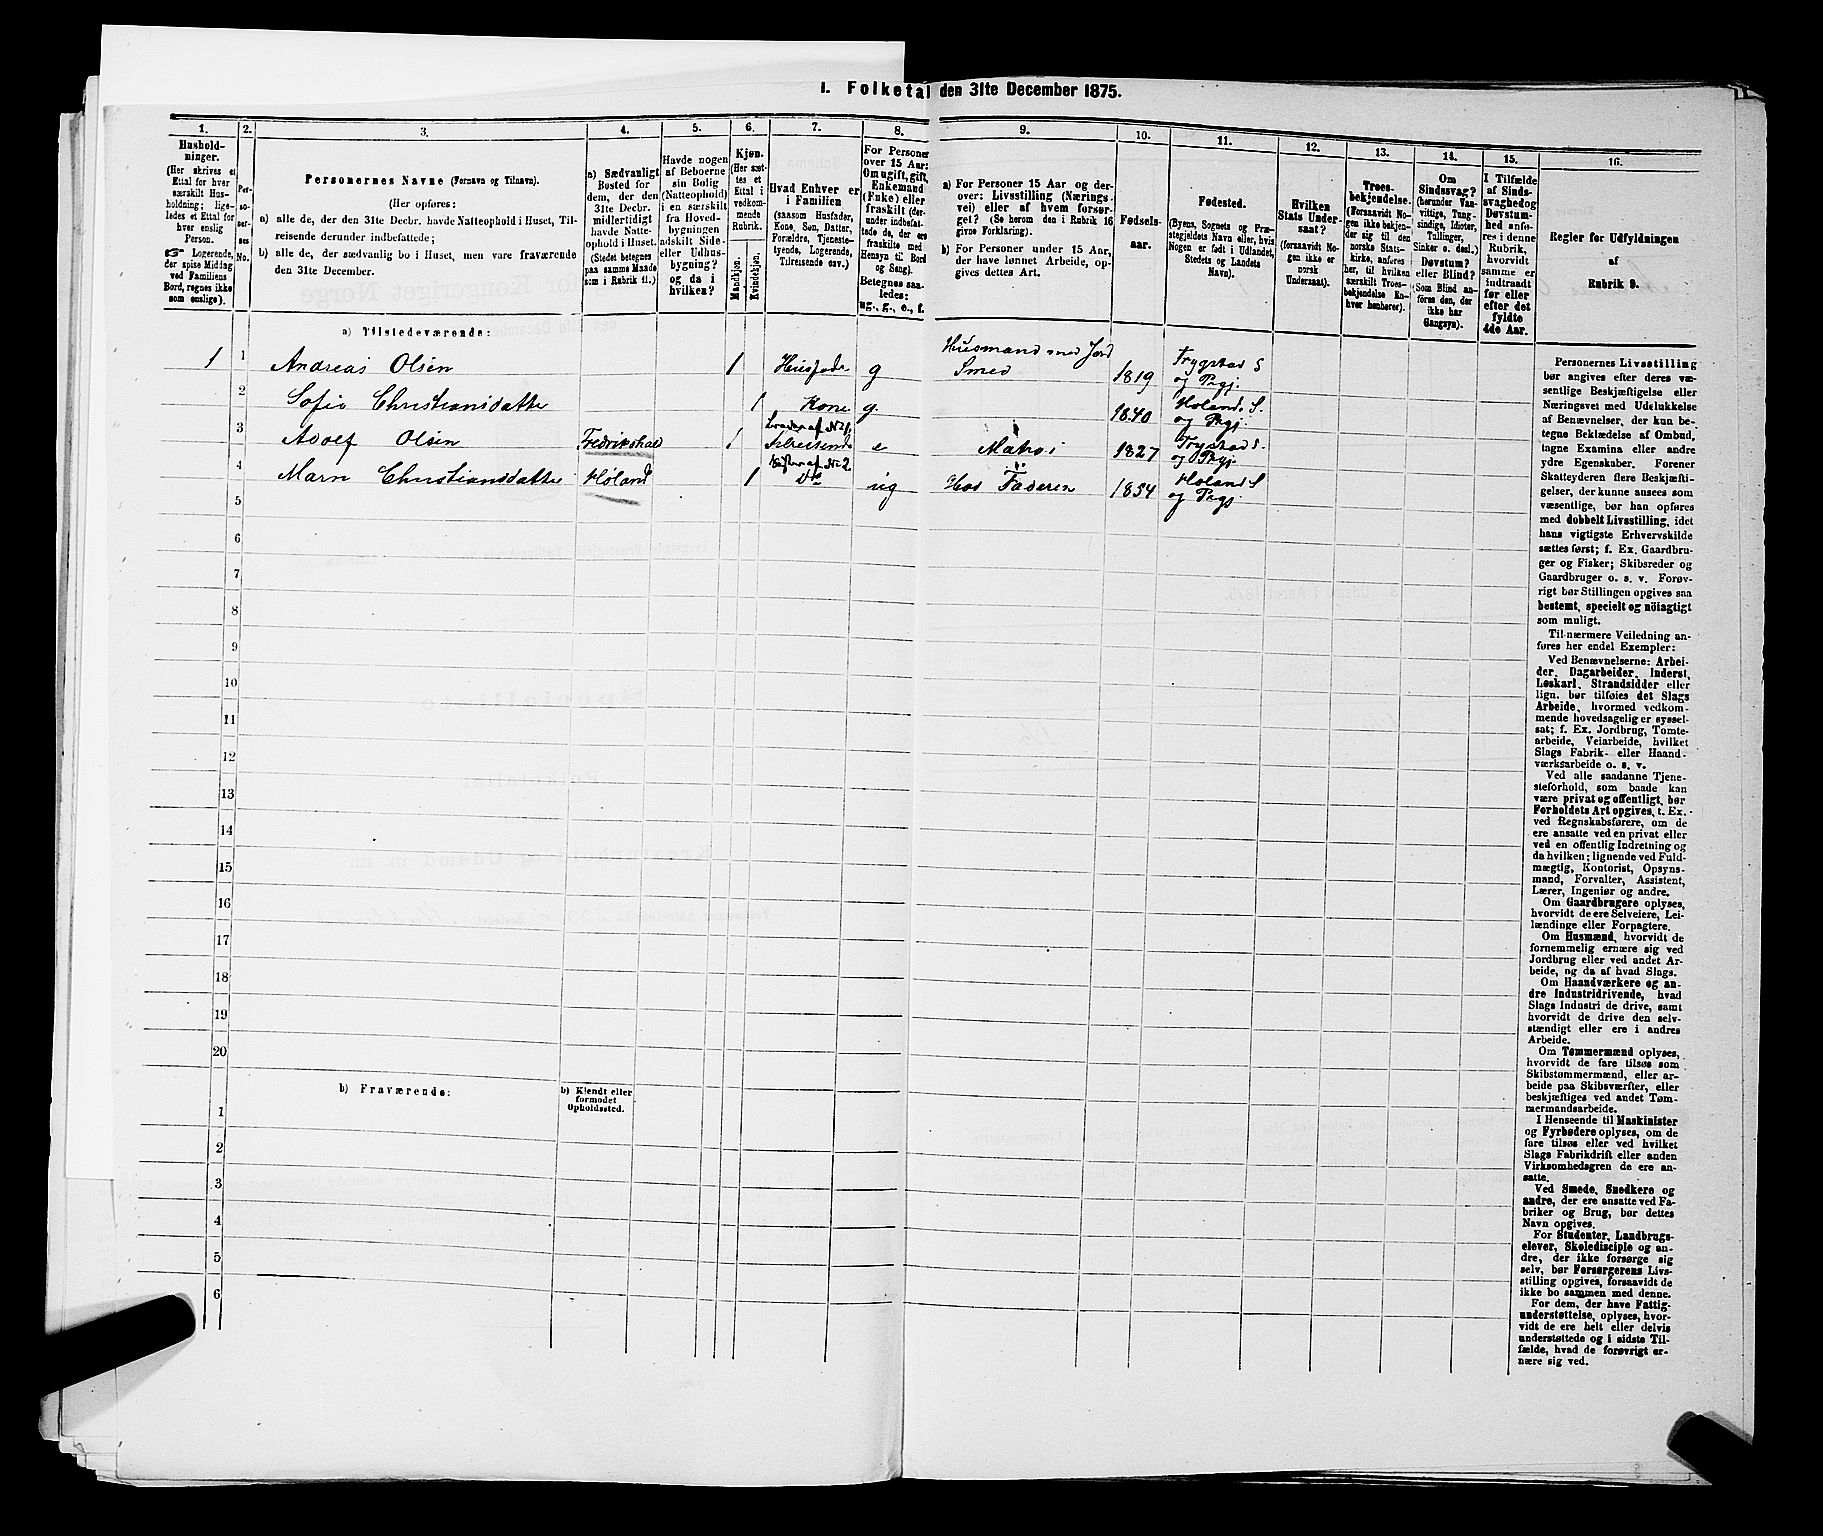 I. Folketal den 31te December 1875.
1. 2. 3. 4. 5. 6. 7. 8. 9. 10. 11. 12. 13. 14. 15. 16.
Hushold-
ninger.
(Her skrives et
Ettal for hver
særskilt Hus-
holdning; lige-
ledes et Ettal for
hver enslig
Person.
Logerende,
der spise Middag
ved Familiens
Bord, regnes ikke
som enslige).
Per-
so-
ner-
nes
No.
Personernes Navne (Fornavn og Tilnavn).
(Her opføres:
a) alle de, der den 31te Decbr. havde Natteophold i Huset, Til-
reisende derunder indbefattede;
b) alle de, der sædvanlig bo i Huset, men vare fraværende
den 31te December.
a) Sædvanligt
Bosted for
dem, der den
31te Decbr.
midlertidigt
havde Natte-
ophold i Huset.
(Stedet betegnes
paa samme Maade
som i Rubrik 11.)
Havde nogen
af Beboerne
sin Bolig
(Natteophold)
i en særskilt
fra Hoved-
bygningen
adskilt Side-
eller Udhus-
bygning?
og da i
hvilken?
Kjøn.
(Her sæt-
tes et
Ettal i
vedkom-
mende
Rubrik.
Mandkjøn.
Kvindekjøn.
Hvad Enhver er
i Familien
(saasom Husfader,
Kone, Søn, Datter,
Forældre, Tjeneste-
tyende, Logerende,
Tilreisende osv.)
For Personer
over 15 Aar:
Om ugift, gift,
Enkemand
(Enke) eller
fraskilt (der-
under indbefat-
tede de, der ere
fraskilte med
Hensyn til Bord
og Seng).
Betegnes saa-
ledes:
ug., g., e., f.
a) For Personer 15 Aar og der-
over: Livsstilling (Nærings-
vei) eller af hvem forsør-
get? (Se herom den i Rubrik 16
givne Forklaring).
b) For Personer under 15 Aar,
der have lønnet Arbeide, op-
gives dettes Art.
Fødsels-
aar.
Fødested.
(Byens, Sognets og Præ-
stegjeldets Navn eller, hvis
Nogen er født i Udlandet,
Stedets og Landets
Navn).
Hvilken
Stats Under-
saat?
(forsaavidt No-
gen ikke er
norsk
Undersaat).
Troes-
bekjendelse.
(Forsaavidt No-
gen ikke bekjen-
der sig til den
norske Stats-
kirke, anføres
her, til hvilken
særskilt Troes-
bekjendelse En-
hver henhører).
Om
Sindssvag?
(herunder Van-
vittige, Tung-
sindige, Idioter,
Tullinger,
Sinker o. desl.)
Døvstum?
eller Blind?
(Som Blind an-
føres den, der
ikke har
Gangsyn).
I Tilfælde
af Sinds-
svaghed og
Døvstum-
hed anfø-
res i denne
Rubrik,
hvorvidt
samme er
indtraadt
før eller
efter det
fyldte
4de Aar.
Regler for Udfyldningen
af
Rubrik 9.
a) Tilstedeværende:
1 1 Andreas Olsen 1 Husfader g Husmand med Jord Smed 1819 Trygstad S og Prgj.
2 Sofie Christiansdatter 1 Kone g. 1840 Høland S. og Prgj.
3 Adolf Olsen Fredrikshald 1 Broder af No 1, Tilreisende e Matros 1827 Trygstad S. og Prgj.
4 Maren Christiansdatter Høland 1 Søster af No 2 Do ug Hos Faderen 1854 Høland S og Prgj.
5
6
7
8
9
10
11
12
13
14
15
16
17
18
19
20
b) Fraværende:
b) Kjendt eller
formodet
Opholdssted.
1
2
3
4
5
6
Personernes Livsstilling
bør angives efter deres væ-
sentlige Beskjæftigelse eller
Næringsvei med Udelukkelse
af Benævnelser, der kun be-
tegne Beklædelse af Ombud,
tagne Examina eller andre
ydre Egenskaber. Forener
Skatteyderen flere Beskjæfti-
gelser, der kunne ansees som
væsentlige, bør han opføres
med dobbelt Livsstilling, idet
hans vigtigste Erhvervskilde
sættes først; f. Ex. Gaardbru-
ger og Fisker; Skibsreder og
Gaardbruger o. s. v. Forøv-
rigt bør Stillingen opgives saa
bestemt, specielt og nöiagtigt
som muligt.
Til nærmere Veiledning an-
føres her endel Exempler:
Ved Benævnelserne: Arbei-
der, Dagarbeider, Inderst,
Løskarl, Strandsidder eller
lign. bør tilføies det Slags
Arbeide, hvormed vedkom-
mende hovedsagelig er syssel-
sat; f. Ex. Jordbrug, Tomte-
arbeide, Veiarbeide, hvilket
Slags Fabrik- eller Haand-
værksarbeide o. s. v.
Ved alle saadanne Tjene-
steforhold, som baade kan
være privat og offentligt, bør
Forholdets Art opgives, t. Ex.
ved Regnskabsførere, om de
ere ansatte ved en privat eller
ved en offentlig Indretning og
da hvilken; lignende ved Fuld-
mægtig, Kontorist, Opsyns-
mand, Forvalter, Assistent,
Lærer, Ingeniør og andre.
Om Gaardbrugere oplyses,
hvorvidt de ere Selveiere, Lei-
lændinge eller Forpagtere.
Om Husmænd, hvorvidt de
fornemmelig ernære sig ved
Jordbrug eller ved andet Ar-
beide, og da af hvad Slags.
Om Haandværkere og an-
dre Industridrivende, hvad
Slags Industri de drive, samt
hvorvidt de drive den selv-
stændigt eller ere i andres
Arbeide.
Om Tømmermænd oplyses,
hvorvidt de fare tilsøs som
Skibstømmermænd, eller ar-
beide paa Skibsværfter, eller
beskjæftiges ved andet Tøm-
mermandsarbeide.
I Henseende til Maskinister
og Fyrbødere oplyses, om de
fare tilsøs eller ved hvilket
Slags Fabrikdrift eller anden
Virksomhedsgren de ere an-
satte.
Ved Smede, Snedkere og
andre, der ere ansatte ved Fa-
briker og Brug, bør dettes
Navn opgives.
For Studenter, Landbrugs-
elever, Skoledisciple og an-
dre, der ikke forsørge sig
selv, bør Forsørgerens Livs-
stilling opgives, forsaavidt de
ikke bo sammen med denne.
For dem, der have Fattig-
understøttelse, oplyses, hvor-
vidt de ere helt eller delvis
understøttede og i sidste Til-
fælde, hvad de forøvrigt er-
nære sig ved.